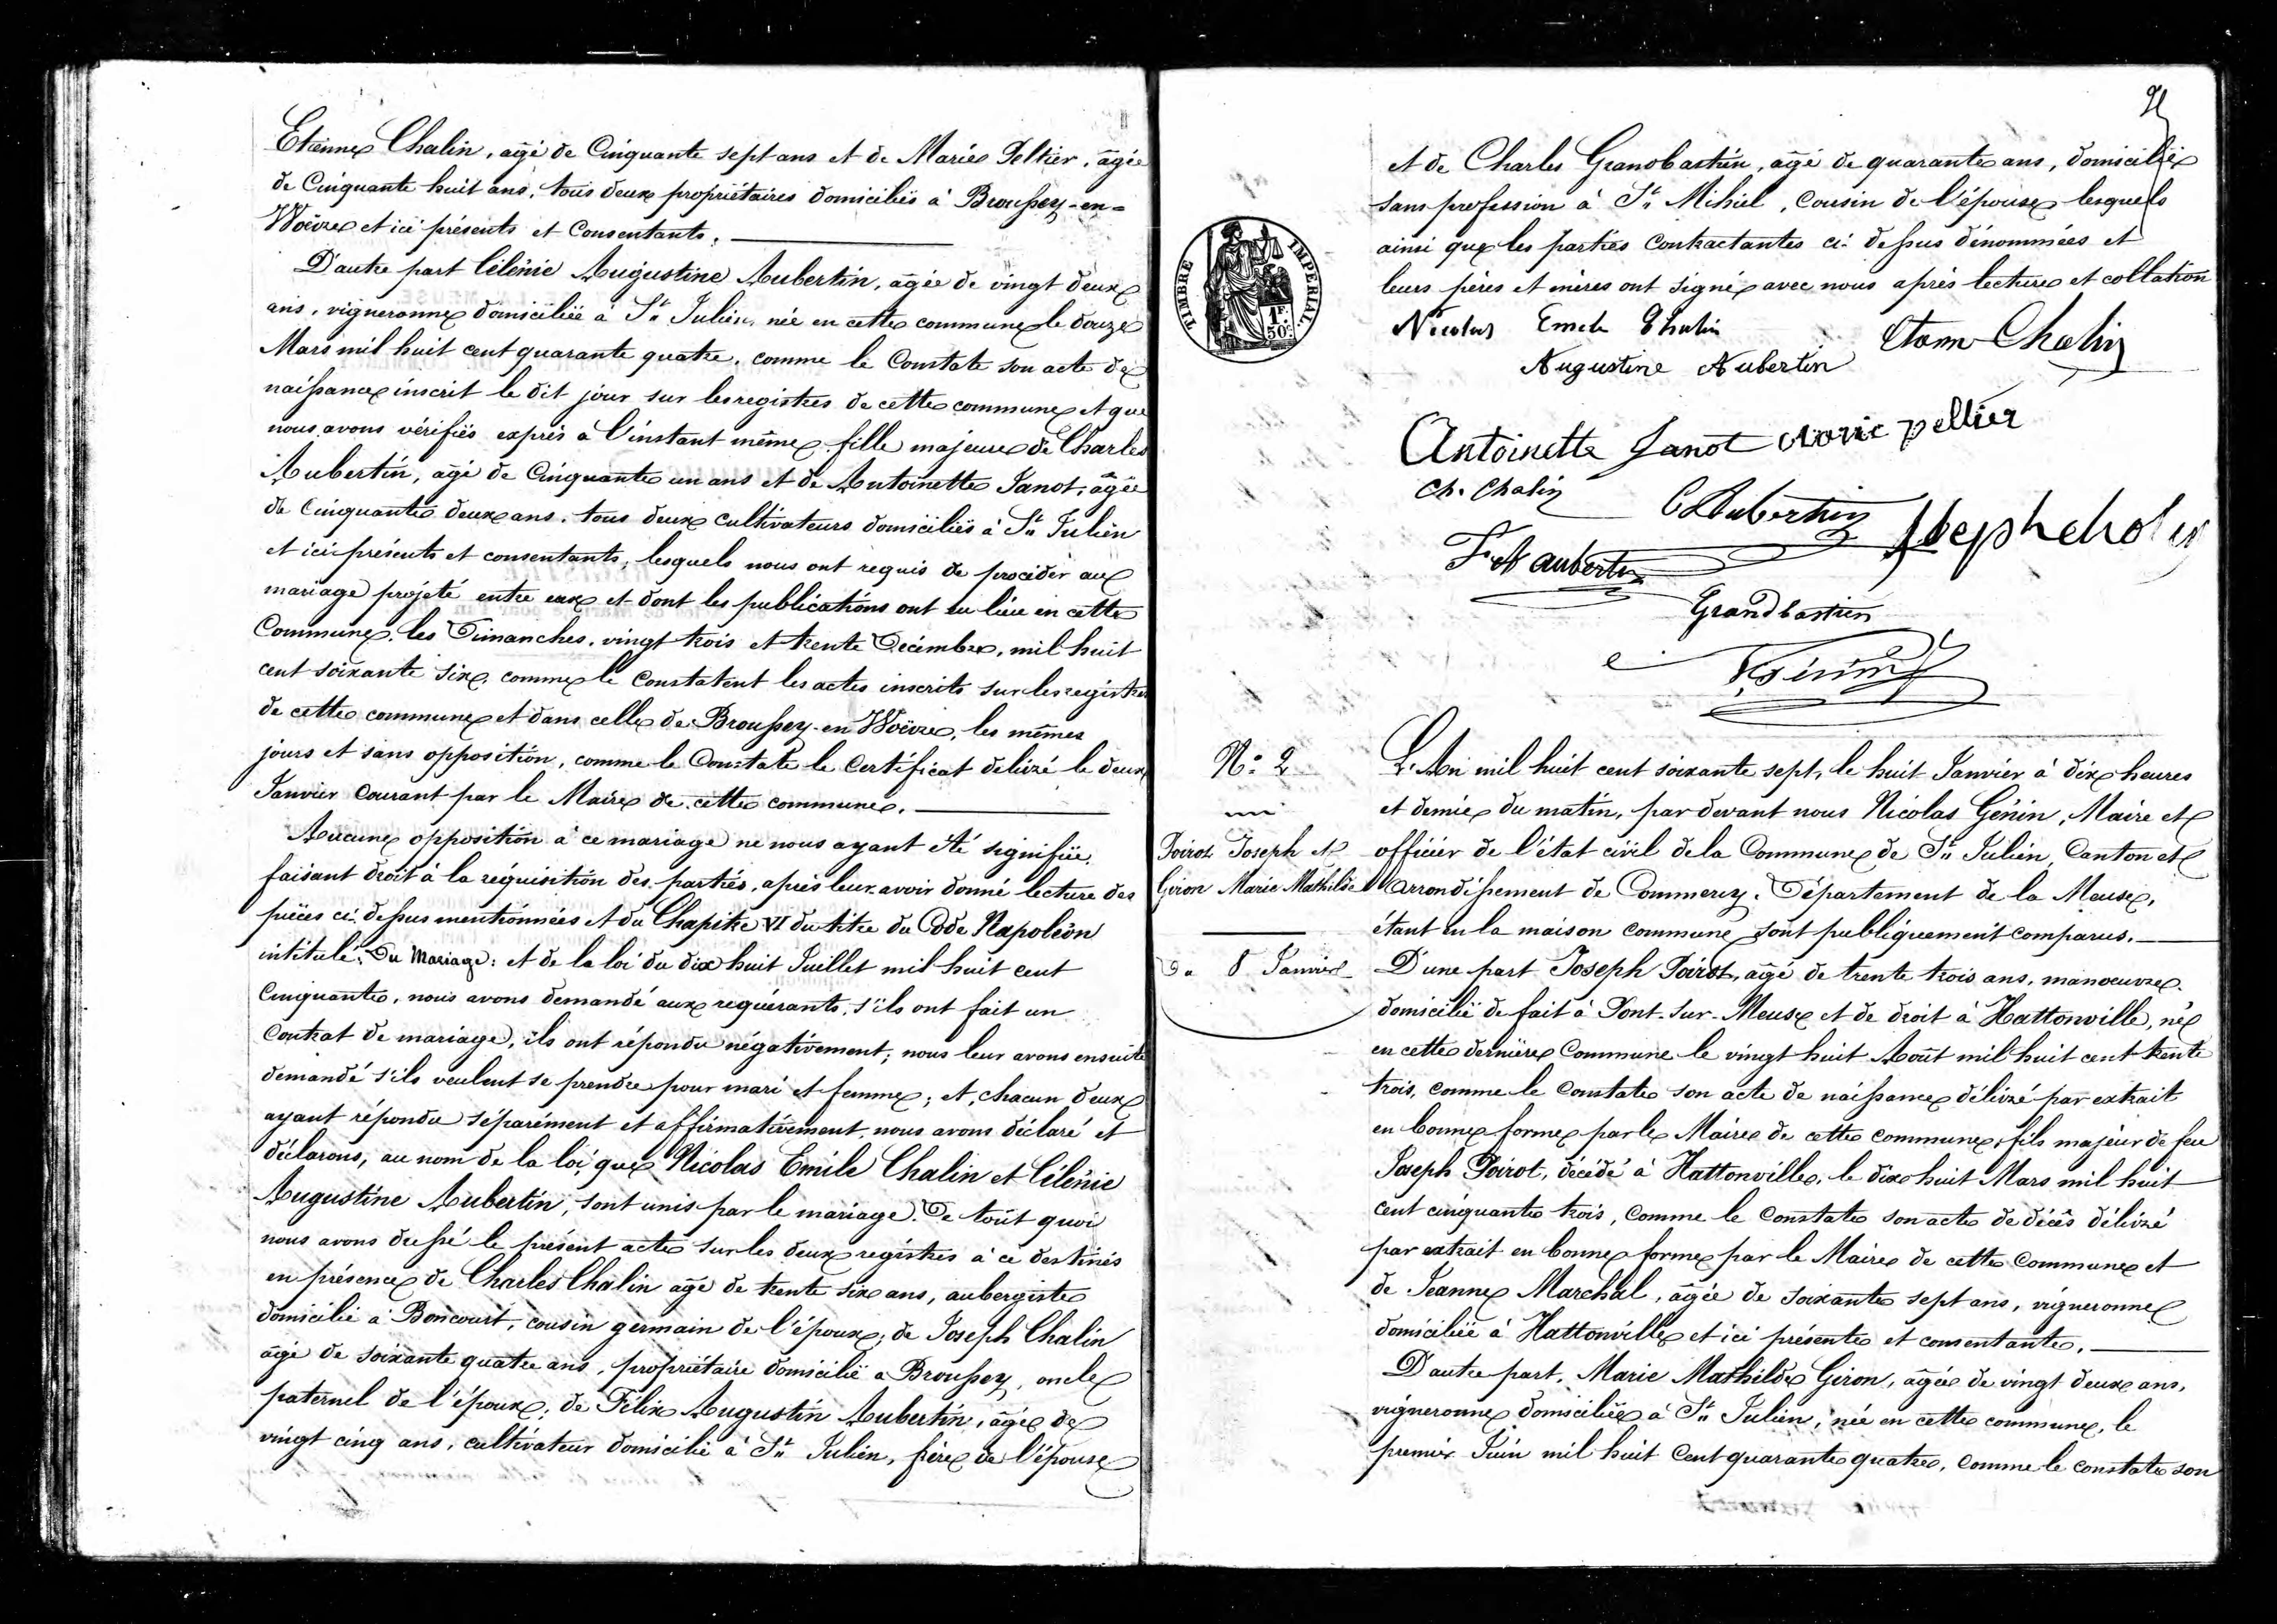 Etienne Chalin, agé de Cinquante sept ans et de Marie Peltier, agée
de Cinquante huit ans, tous deux propriétaires domiciliés à Broussey-en-
Woëvre et ici présents et Consentants.
D'autre part Célénie Augustine Aubertin, agée de vingt deux
ans, vigneronne domiciliée à St Julien, née en cette commune le douze
Mars mil huit cent quarante quatre, comme le Constate son acte de
naissance inscrit le dit jour sur les registres de cette commune et que
nous avons vérifiés exprès à l'instant même, fille majeure de Charles
Aubertin, agé de Cinquante un ans et de Antoinette Janot, âgée
de Cinquante deux ans, tous deux cultivateurs domiciliés à St Julien
et ici présents et consentants, lesquels nous ont requis de procéder au
mariage projeté entre eux et dont les publications ont eu lieu en cette
Commune, les Dimanches, vingt trois et trente Décembre, mil huit
cent soixante six, comme le Constatent les actes inscrits sur les registres
de cette commune et dans celle de Broussey-en Woëvre, les mêmes
jours et sans opposition, comme le Constate le Certificat délivré le deux
Janvier Courant par le Maire de cette commune.
Aucune opposition à ce mariage ne nous ayant été signifiée,
faisant droit à la réquisition des parties, après leur avoir donné lecture des
pièces ci-dessus mentionnées et du Chapitre VI du titre du Code Napoléon
intitulé: Du Mariage: et de la loi du dix huit Juillet mil huit cent
Cinquante, nous avons demandé aux requérants, s'ils ont fait un
Contrat de mariage, ils ont répondu négativement; nous leur avons ensuite
demandé s'ils veulent se prendre pour mari et femme; et, chacun deux
ayant répondu séparément et affirmativement, nous avons déclaré et
déclarons, au nom de la loi, que Nicolas Emile Chalin et Célénie
Augustine Aubertin, sont unis par le mariage. De tout quoi
nous avons dressé le présent acte sur les deux registres à ce destinés
en présence de Charles Chalin agé de trente six ans, aubergiste
domicilié à Boncourt, cousin germain de l'époux; de Joseph Chalin
agé de soixante quatre ans, propriétaire domicilié a Broussey, oncle
paternel de l'époux; de Félix Augustin Aubertin, agée de
vingt cinq ans, cultivateur domicilié à St Julien, frère de l'épouse
2
et de Charles Grandbastien, agé de quarante ans, domicilié
sans profession à St Mihiel, Cousin de l'épouse lesquels
ainsi que les parties Contractantes ci-dessus dénommées et
leurs pères et mères ont signé avec nous après lecture et collation
TIMBRE IMPERIAL.
1F.
50c.
Nicolas Emile Chalin
Augustine Aubertin
Chalin
Antoinette Janot Marie peltier
Ch. Chalin
C Aubertin
F A aubertin
Grandbastien
Génin
N: 2
Poirot Joseph et
Giron Marie Mathilde
Du 8 Janvier
L'An mil huit cent soixante sept, le huit Janvier à dix heures
et demie du matin, par devant nous Nicolas Génin, Maire et
officier de l'état civil de la Commune de St Julien, Canton et
Arrondissement de Commercy, Département de la Meuse,
étant en la maison commune, sont publiquement comparus.
D'une part Joseph Poirot, agé de trente trois ans, manoeuvre
domicilié de fait à Pont-sur-Meuse et de droit à Hattonville, né
en cette dernière Commune le vingt huit Août mil huit cent trente
trois, comme le Constate son acte de naissance délivré par extrait
en bonne forme par le Maire de cette commune, fils majeur de feu
Joseph Poirot, décédé à Hattonville, le dix huit Mars mil huit
cent cinquante trois, comme le Constate son acte de décès délivré
par extrait en bonne forme par le Maire de cette Commune et
de Jeanne Marchal, agée de soixante sept ans, vigneronne
domiciliée à Hattonville et ici présente et consentante.
D'autre part, Marie Mathilde Giron, agée de vingt deux ans,
vigneronne domiciliée à St Julien, née en cette commune, le
premier Juin mil huit Cent quarante quatre, comme le constate son